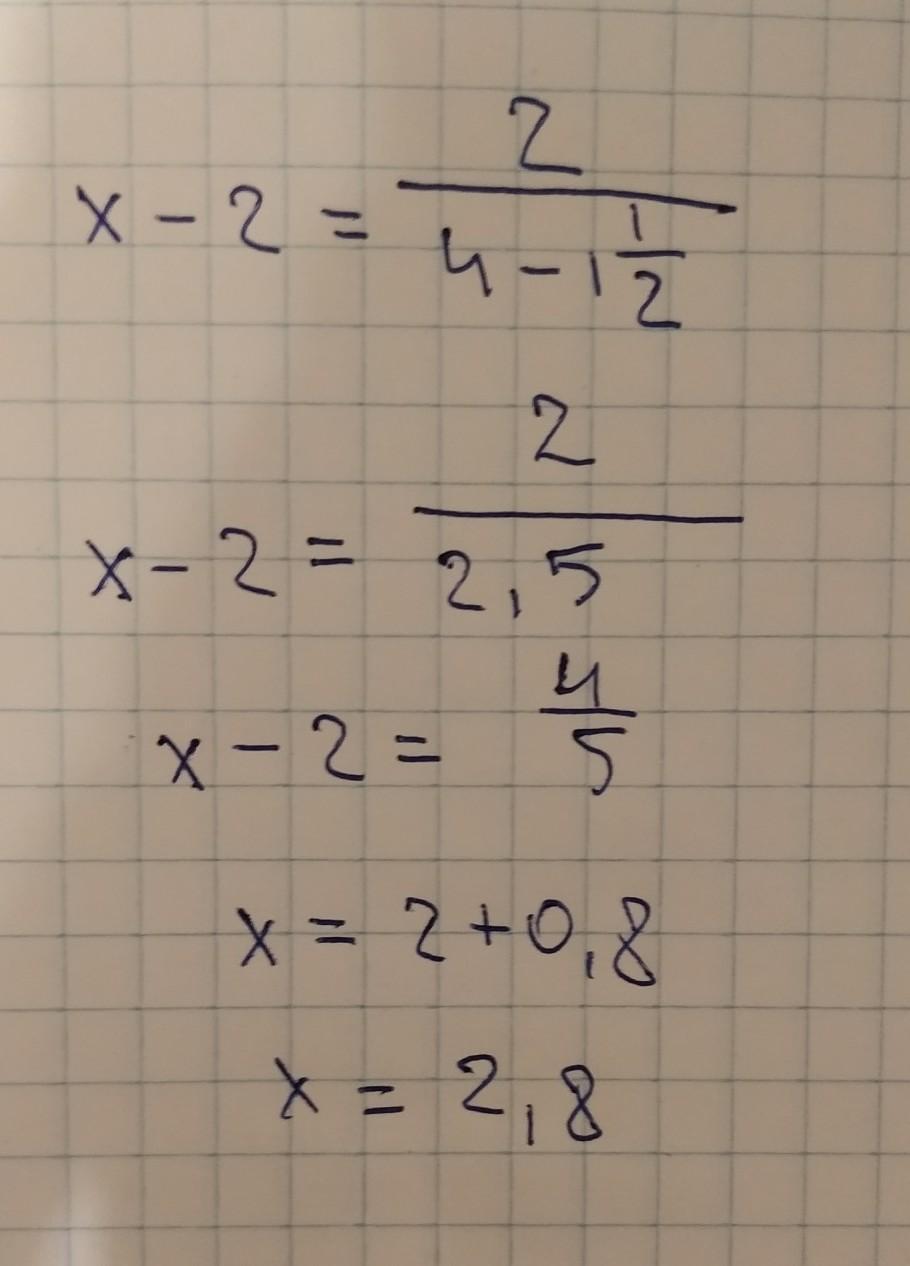 x - 2 = 2 / (4 - 1 1/2)
x - 2 = 2 / 2,5
x - 2 = 4/5
x = 2 + 0,8
x = 2,8